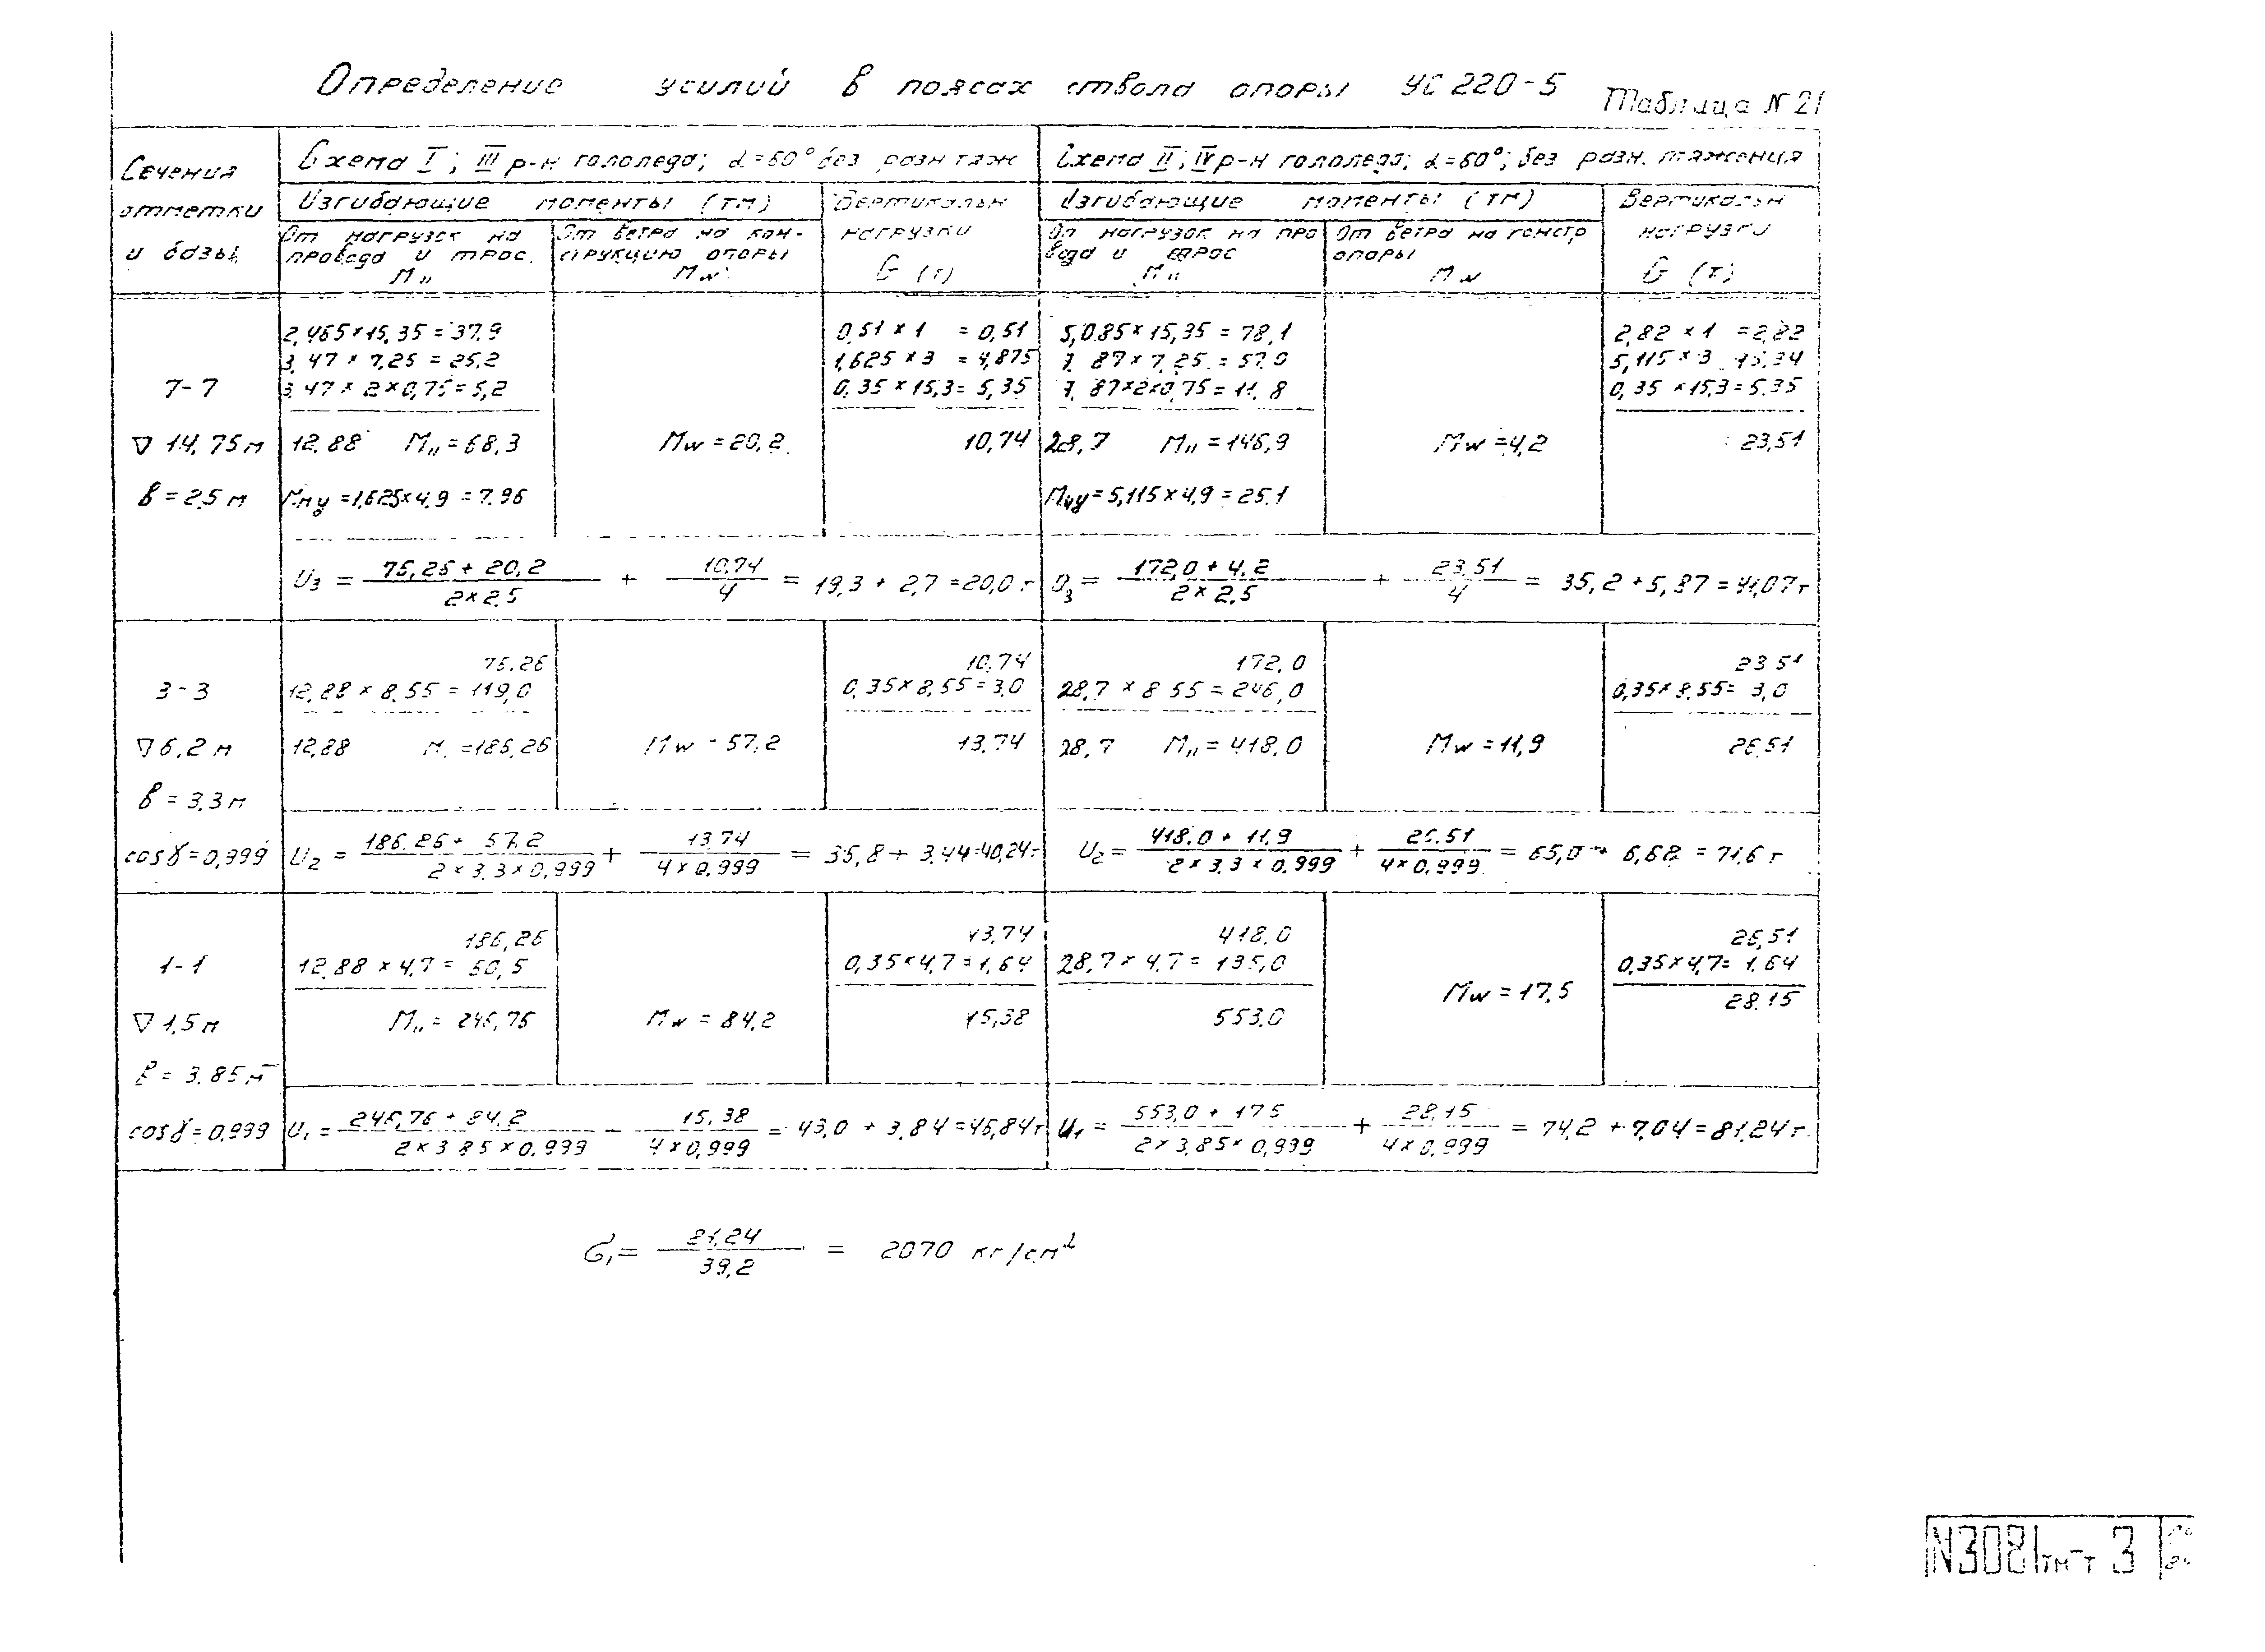 Определение усилий в поясах ствола опоры УС 220-5
Таблица N 21
Сечения
отметки
и базы
Схема I; III р-н гололеда; α=60° без разн тяж
Изгибающие моменты (тм)
От нагрузок на
провода и трос.
Mп
От ветра на кон-
струкцию опоры
Mw
Вертикальн
нагрузки
G (т)
Схема II; IV р-н гололеда; α=60°; без разн. тяжения
Изгибающие моменты (тм)
От нагрузок на про
вода и трос
Mп
От ветра на констр
опоры
Mw
Вертикальн
нагрузки
G (т)
7-7
▽ 14,75м
в = 2,5 м
2,465×15,35 = 37,9
3,47 × 7,25 = 25,2
3,47 × 2×0,75 = 5,2
12,88 Mп = 68,3
=1,625×4,9 = 7,96
Mw = 20,2
0,51 × 1 = 0,51
1,625 × 3 = 4,875
0,35 × 15,3 = 5,35
10,74
5,085×15,35 = 78,1
7,87×7,25 = 57,0
7,87×2×0,75 = 11,8
28,7 Mп = 146,9
=5,115×4,9 = 25,1
Mw = 4,2
2,82 × 1 = 2,82
5,115 × 3 15,34
0,35 × 15,3 = 5,35
23,51
U3 = 75,26 + 20,2 / 2×2,5 + 10,74 / 4 = 19,3 + 2,7 = 20,0 т
U3 = 172,0 + 4,2 / 2×2,5 + 23,51 / 4 = 35,2 + 5,87 = 41,07 т
3-3
▽ 6,2 м
в = 3,3 м
cosγ = 0,999
76,26
12,88 × 8,55 = 119,0
12,88 M =186,26
Mw - 57,2
10,74
0,35×8,55 = 3,0
13,74
172,0
28,7 × 8 55 = 246,0
28,7 Mп = 418,0
Mw = 11,9
23 51
0,35×8,55 = 3,0
26,51
U2 = 186,26 + 57,2 / 2×3,3×0,999 + 13,74 / 4×0,999 = 36,8 + 3,44 = 40,24 т
U2 = 418,0 + 11,9 / 2×3,3×0,999 + 26,51 / 4×0,999 = 65,0 + 6,62 = 71,6 т
1-1
▽ 1,5 м
в = 3,85 м
cosγ = 0,999
186,26
12,88 × 4,7 = 60,5
Mп = 246,76
Mw = 84,2
13,74
0,35×4,7 = 1,64
15,38
418,0
28,7 × 4,7 = 135,0
553,0
Mw = 17,5
26,51
0,35×4,7 = 1,64
28,15
U1 = 246,76 + 84,2 / 2×3 85×0,999 − 15,38 / 4×0,999 = 43,0 + 3,84 = 46,84 т
U1 = 553,0 + 17 5 / 2×3,85×0,999 + 28,15 / 4×0,999 = 74,2 + 7,04 = 81,24 т.
σ1 = 81,24 / 39,2 = 2070 кг/см²
N3081тм-т 3